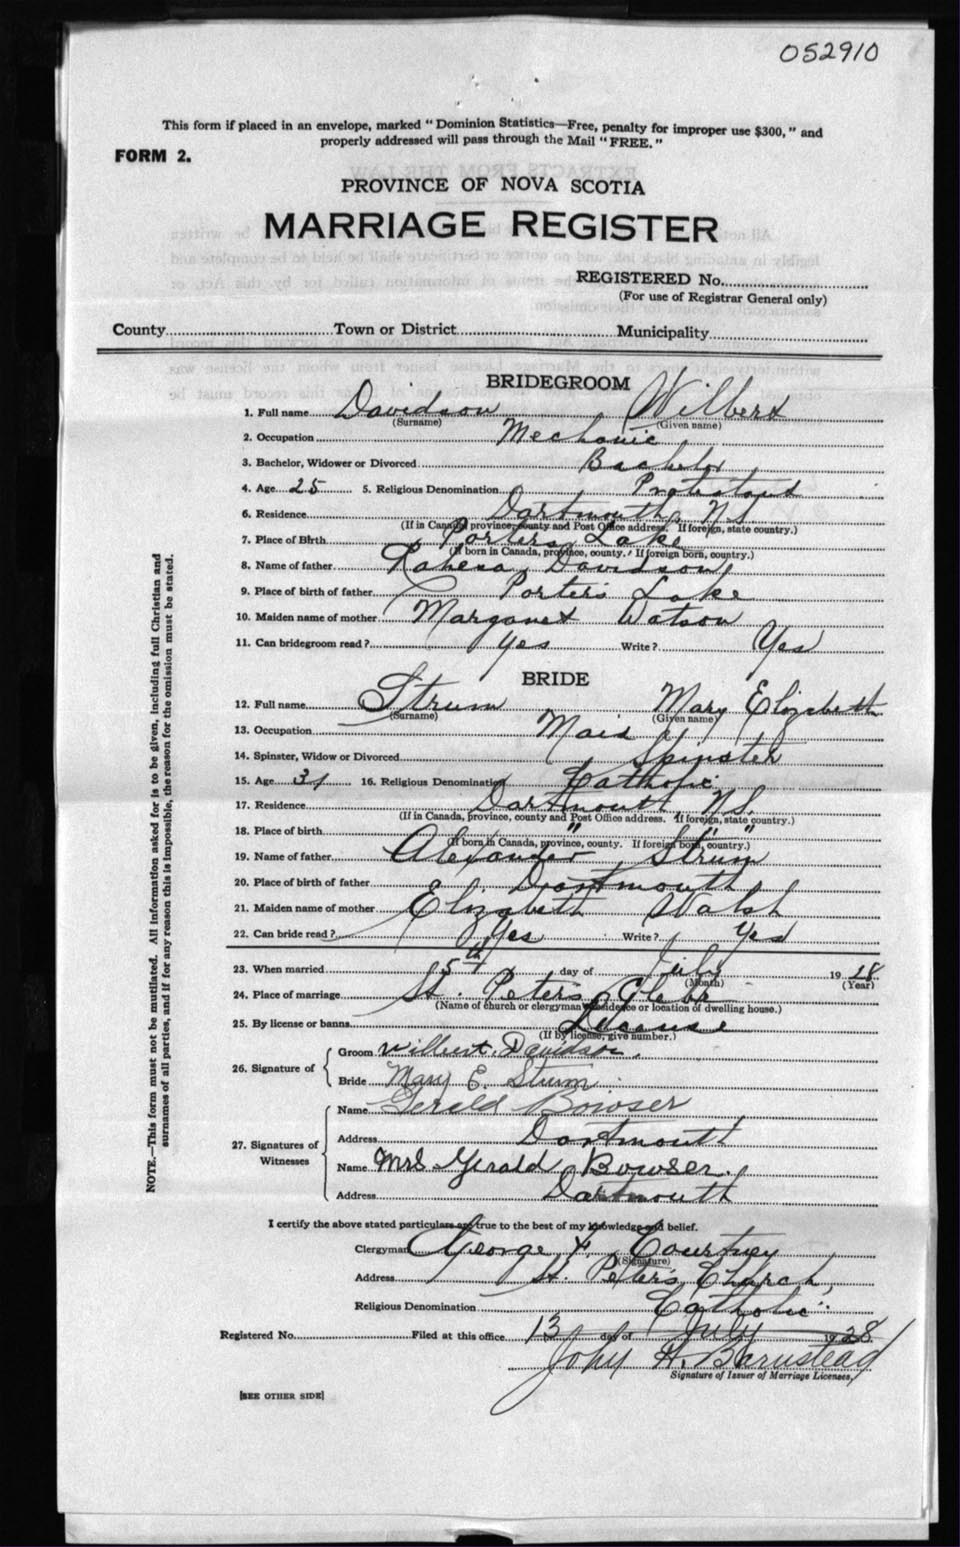 052910
This form if placed in an envelope, marked "Dominion Statistics—Free, penalty for improper use $300," and
properly addressed will pass through the Mail "FREE."
FORM 2.
PROVINCE OF NOVA SCOTIA
MARRIAGE REGISTER
REGISTERED No.
(For use of Registrar General only)
County Town or District Municipality
BRIDEGROOM
1. Full name Davidson Wilbert
(Surname) (Given name)
2. Occupation Mechanic
3. Bachelor, Widower or Divorced Bachelor
4. Age 25 5. Religious Denomination Protestant
6. Residence Dartmouth, N.S.
(If in Canada, province, county and Post Office address. If foreign, state country.)
7. Place of Birth Porters Lake
(If born in Canada, province, county. If foreign born, country.)
8. Name of father Davidson
9. Place of birth of father Porter's Lake
10. Maiden name of mother Margaret Watson
11. Can bridegroom read? Yes Write? Yes
BRIDE
12. Full name Strum Mary Elizabeth
(Surname) (Given name)
13. Occupation Maid
14. Spinster, Widow or Divorced Spinster
15. Age 31 16. Religious Denomination Catholic
17. Residence Dartmouth N.S.
(If in Canada, province, county and Post Office address. If foreign, state country.)
18. Place of birth " " "
(If born in Canada, province, county. If foreign born, country.)
19. Name of father Alexander Strum
20. Place of birth of father Dartmouth
21. Maiden name of mother Elizabeth Walsh
22. Can bride read? Yes Write? Yes
23. When married 5th day of July 1928
(Month) (Year)
24. Place of marriage St. Peter's Glebe
(Name of church or clergyman's residence or location of dwelling house.)
25. By license or banns License
(If by license, give number.)
26. Signature of
Groom Wilbert Davidson.
Bride Mary E. Strum
27. Signatures of Witnesses
Name Gerald Bowser
Address Dartmouth
Name Mrs Gerald Bowser.
Address Dartmouth
I certify the above stated particulars are true to the best of my knowledge and belief.
Clergyman George F. Courtney
(Signature)
Address St. Peter's Church,
Religious Denomination Catholic
Registered No. Filed at this office 13 day of July 1928.
John H. Barnstead
Signature of Issuer of Marriage Licenses.
[SEE OTHER SIDE]
NOTE.—This form must not be mutilated. All information asked for is to be given, including full Christian and
surnames of all parties, and if for any reason this is impossible, the reason for the omission must be stated.